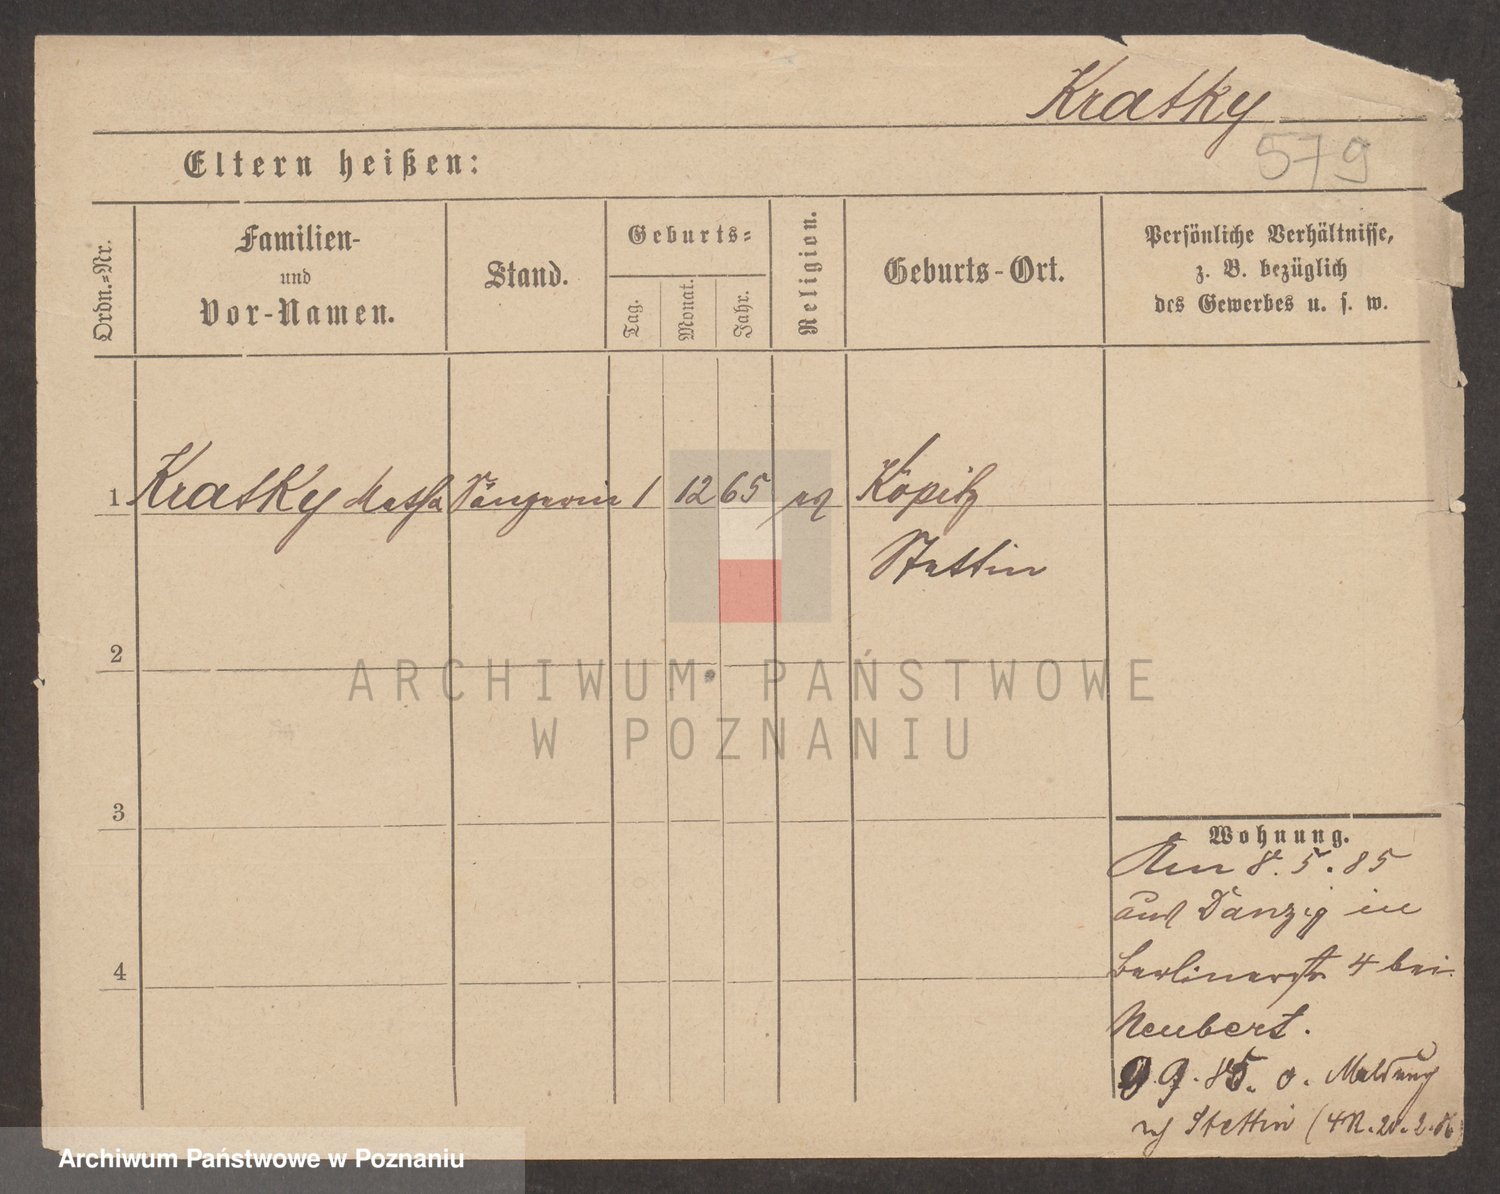 Kratky
579
Eltern heißen:
Ordn.-Nr.
Familien-
und
Vor-Namen.
Stand.
Geburts-
Tag.
Monat.
Jahr.
Religion.
Geburts-Ort.
Persönliche Verhältnisse,
z. B. bezüglich
des Gewerbes u. s. w.
1 Kratky Sängerin 1 12 65 Köpitz
Stettin
2
ARCHIWUM PAŃSTWOWE
W POZNANIU
3
4
Wohnung.
Am 8.5.85
aus Danzig in
Berlinerstr 4 bei
Neubert.
9.9.85. o. Meldung
Stettin
Archiwum Państwowe w Poznaniu